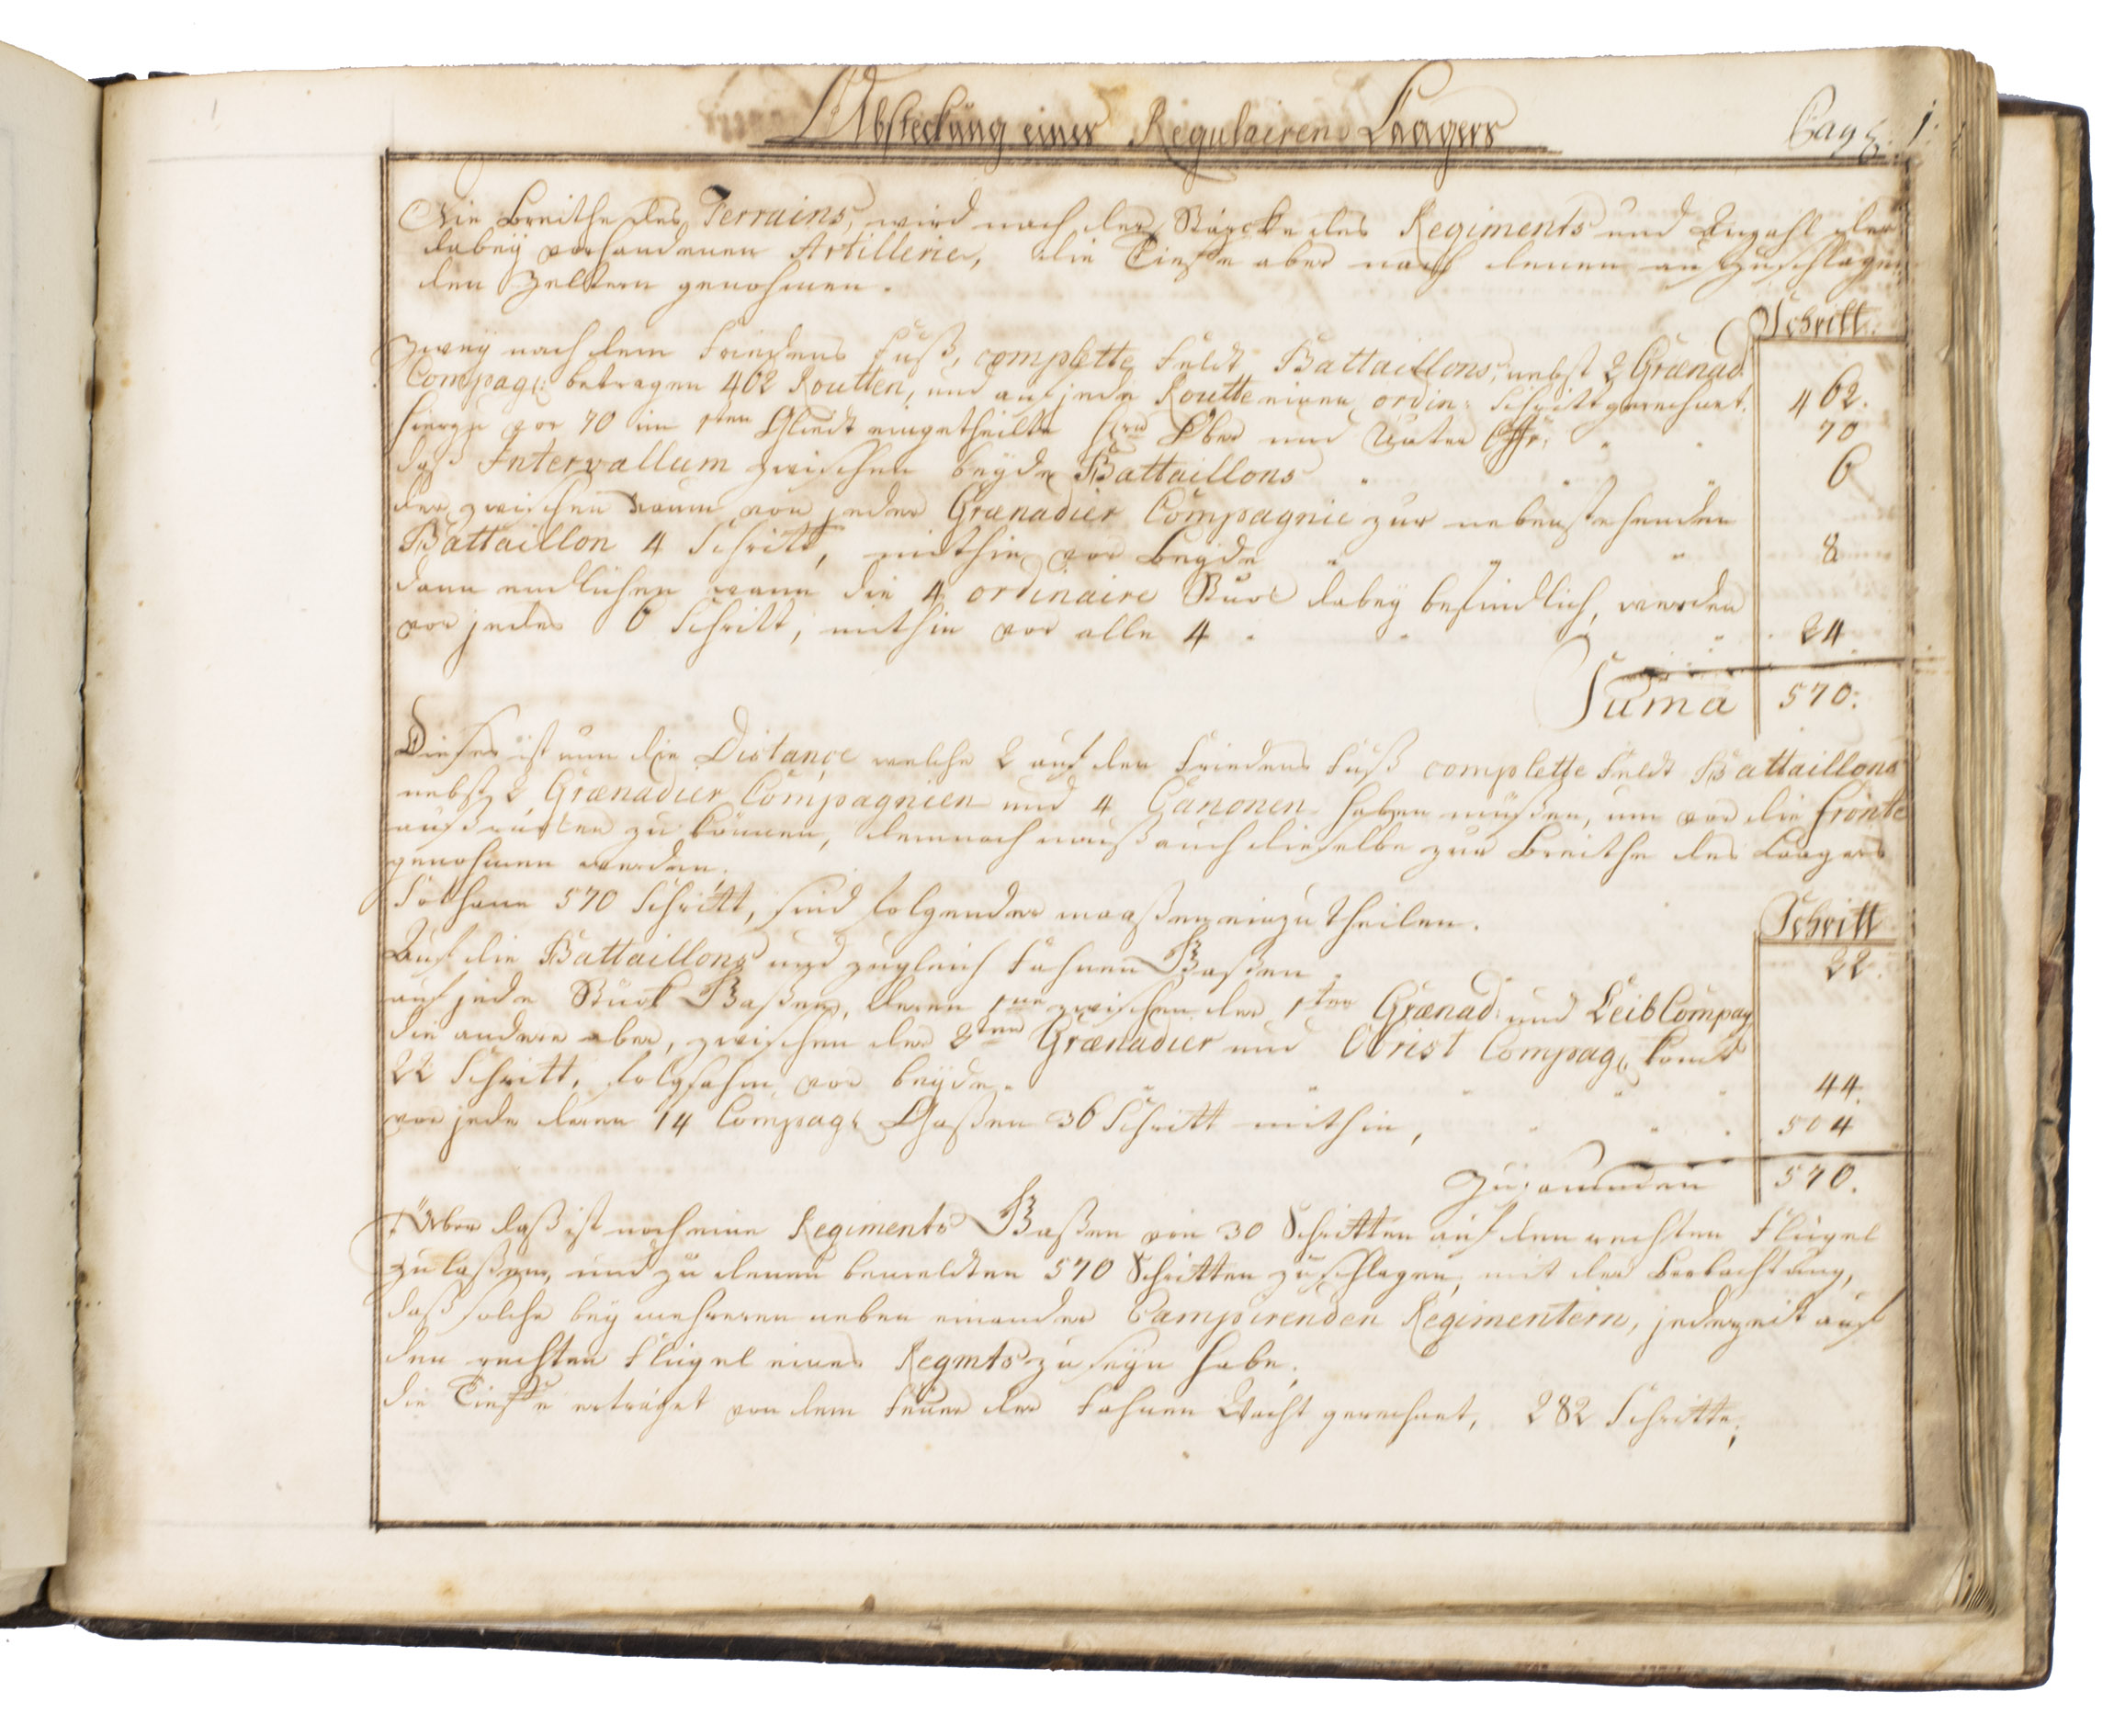 Absteckung eines Regulairen Laagers
Pag: 1:
Die Breithe des Terrains, wird nach der Stärcke des Regiments und Anzahl der
dabey vorhandenen Artillerie, die Tieffe aber nach denen aufzuschlagen
den Zeltern genohmen.
Schritt.
Zwey nach dem Friedens Fuß, complette Feldt Battaillons, nebst 2 Grænad:
Compag: betragen 462 Routten, und auf jede Routte einen ordin: Schritt gerechnet. 462.
hierzu vor 70 im 1ten Gliedt eingetheilte Hrn Ober und Unter Offr: 70
daß Intervallum zwischen beyde Battaillons 6
der zwischen Raum von jeder Grænadier Compagnie zur nebenstehenden
Battaillon 4 Schritt, mithin vor beyde 8
dann endlichen wann die 4 ordinaire Stuck dabey befindlich, werden
vor jedes 6 Schritt, mithin vor alle 4. 24
Suma 570:
Dieses ist nun die Distançe welche 2 auf den Friedens Fuß complette Feldt Battaillons
nebst 2 Grænadier Compagnien und 4 Canonen haben müßen, um vor die Fronte
außrücken zu können, demnach muß auch dieselbe zur Breithe des Laagers
genohmen werden.
Sothane 570 Schritt, sind folgender maaßen einzutheilen.
Schritt
Auf die Battaillons und zugleich Fahnen Gaßen. 22.
auf jede Stuck Gaßen, deren 1ne zwischen der 1ten Grænad: und Leib Compag
die andere aber, zwischen der 2ten Grænadier und Obrist Compag: komt
22 Schritt, folgsahm vor beyde. 44.
vor jede deren 14 Compag: Gaßen 36 Schritt mithin, 504
Zusammen 570.
Über daß ist noch eine Regiments Gaßen von 30 Schritten auf den rechten Flügel
zu laßen, und zu denen bemeldten 570 Schritten zuschlagen, mit der Beobachtung,
daß solche bey mehreren neben einander Campirenden Regimentern, jederzeit auf
den rechten Flügel eines Regmts zu seyn habe.
die Tieffe erträget von dem Feuer der Fahnen Wacht gerechnet, 282 Schritte.